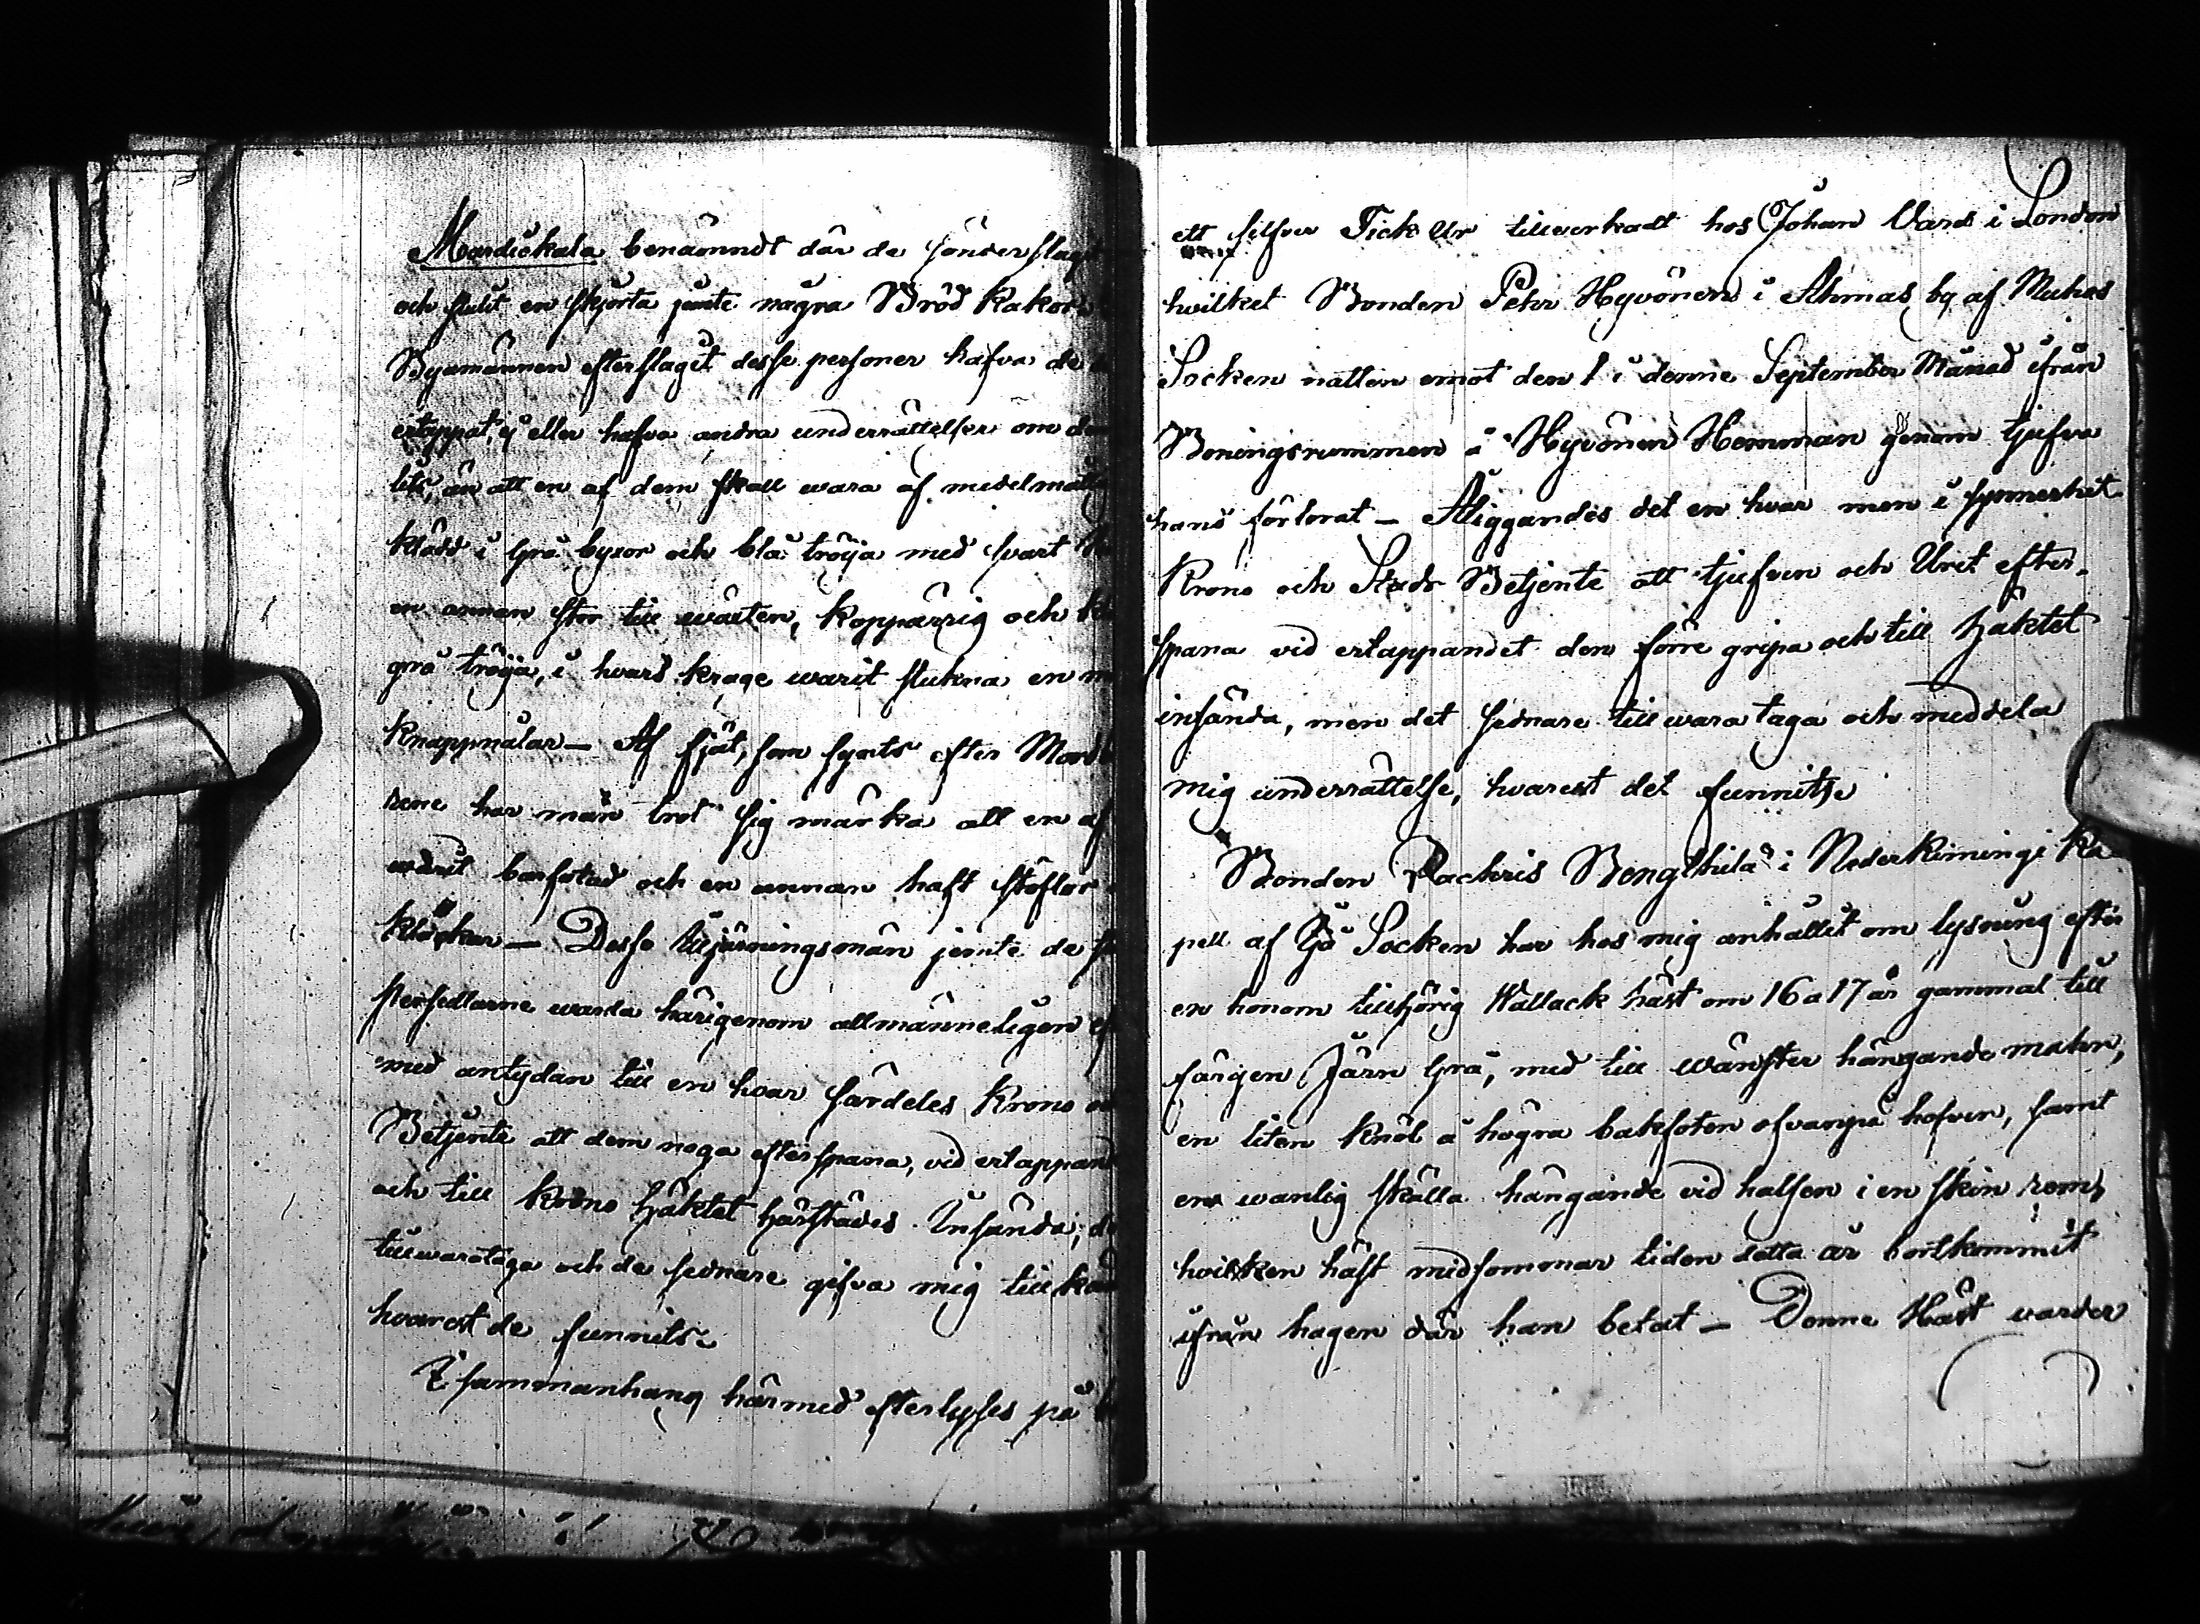 Mardickala benämndt där de sönderslag
och stulit en skjorta jemte några Bröd Kakor
Byamännen efterslagit desse personer hafva de
ertappat, ej eller hafva andra underrättelser om de
lits, än att en af dem skall wara af medelmått
klädd i grå byxor och blå tröija med svart
en annan stor till wäxten, kopparrig och
grå tröija, i hvars krage warit stukna en
Knappnålar — Af fjät, som synts efter Mord
rene har man trot sig märka att en af
warit barfotad och en annan haft stöflor
klackar — Desse illgjärningsmän jemte de
persedlarne warda härigenom allmänneligen ef
med antydan till en hvar särdeles Krono o
Betjente att dem noga efterspana, vid ertappand
och till Krono häktet härstädes Insända; d
tillwarataga och de sednare gifva mig till kän
hvarest de funnits.
I sammanhang härmed efterlyses på
ett silfver Fick Ur tillverkadt hos Johan Vards i London
hvilket Bonden Pehr Hyvönen i Ahmas by af Muhos
Socken natten emot den 1 i denne September Månad ifrån
Boningsrummen å Hyvönen Hemman genom tjufva
hand förlorat — Åliggandes det en hvar men i synnerhet
Krono och Stads Betjente att tjufven och Uret efter-
spana vid ertappandet den förre gripa och till häktet
insända, men det sednare tillwara taga och meddela
mig underrättelse, hvarest det funnits
Bonden Zachris Bengthila i Nederkiminge Ka
pell af Ijo Socken har hos mig anhållit om lysning efter
en honom tillhörig Wallack häst om 16 a 17 år gammal till
färgen Järn Grå, med till wänster hängande mahn,
en liten knöl å högra bakfoten ofvanpå hofven, samt
en wanlig skälla hängande vid halsen i en skin rem,
hvilken häst midsommar tiden detta år bortkommit
ifrån hagen där han betat — Denne Häst warder